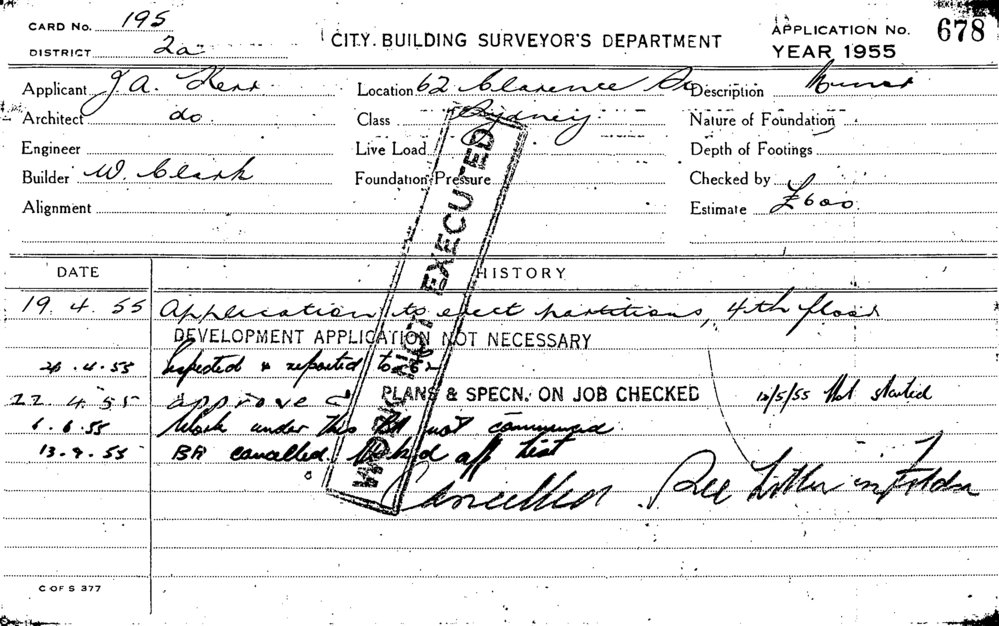 CARD No. 195
DISTRICT 2a
CITY BUILDING SURVEYOR'S DEPARTMENT
APPLICATION No. 678
YEAR 1955
Applicant J A. Kerr Location 62 Clarence St Description Minor
Architect do. Class Sydney Nature of Foundation
Engineer Live Load Depth of Footings
Builder W. Clark Foundation Pressure Checked by
Alignment Estimate £600
WORK NOT EXECUTED
DATE HISTORY
19.4.55 Application to erect partitions, 4th floor
DEVELOPMENT APPLICATION NOT NECESSARY
20.4.55 Inspected & reported to
22 4.55 approved PLANS & SPECN. ON JOB CHECKED 12/5/55 Not started
6.6.55 Work under this BA not commenced
13.9.55 BA cancelled. off list
Cancelled. See letter in folder
C OF S 377